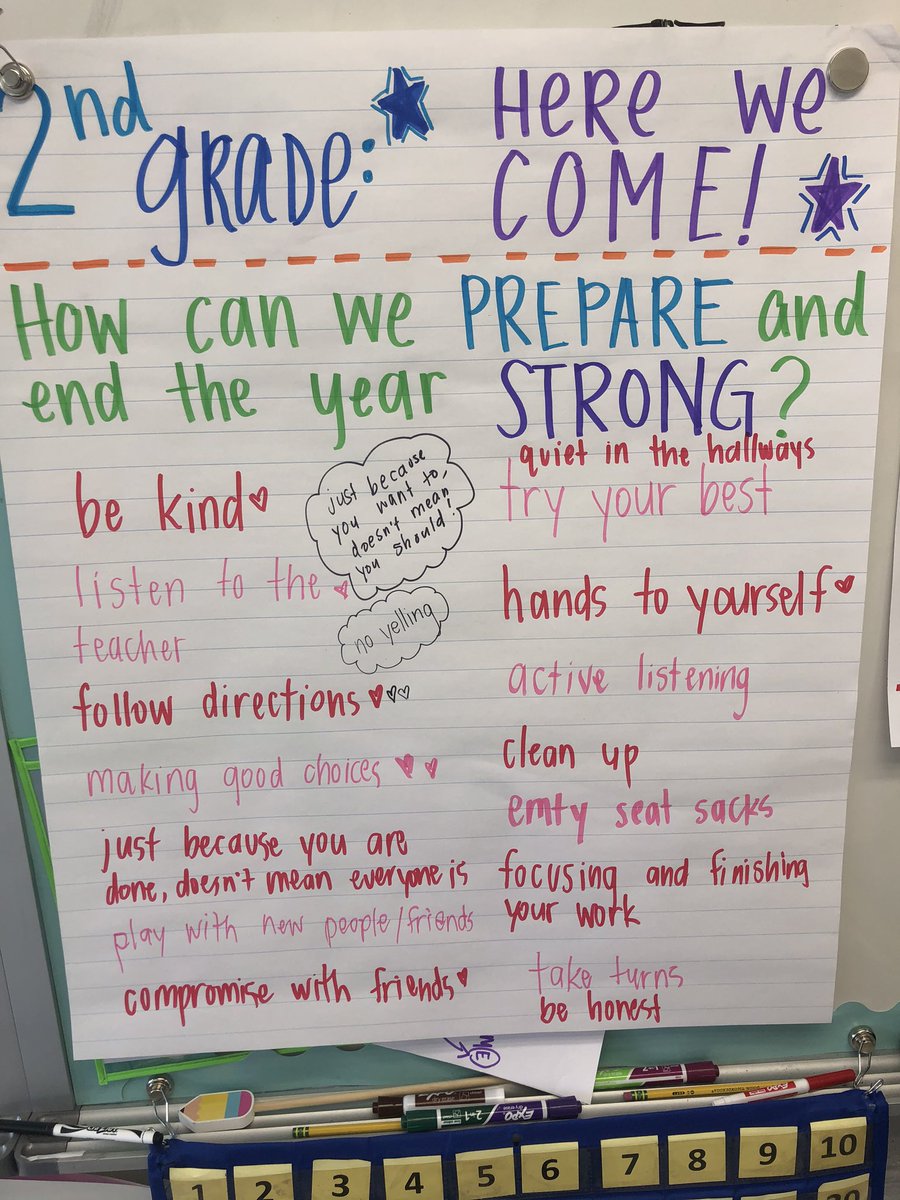 2nd
GRADE:
HERE WE
COME!
HOW can we PREPARE and
end the year STRONG?
be kind
listen to the
teacher
follow directions
making good choices
just because you are
done, doesn't mean everyone is
play with new people/friends
compromise with friends
just because
you want to,
doesn't mean
you should!
no yelling
quiet in the hallways
try your best
hands to yourself
active listening
clean up
emty seat sacks
focusing and finishing
your work
take turns
be honest
ME
EXPO
2in1
EXPO
1 2 3 4 5 6 7 8 9 10